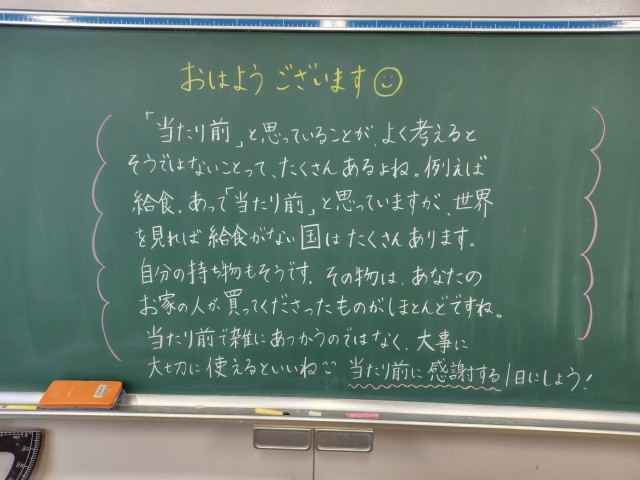 おはようございます
「当たり前」と思っていることが、よく考えると
そうではないことって、たくさんあるよね。例えば
給食。あって「当たり前」と思っていますが、世界
を見れば給食がない国はたくさんあります。
自分の持ち物もそうです。その物は、あなたの
お家の人が買ってくださったものがほとんどですね。
当たり前で雑にあつかうのではなく、大事に
大切に使えるといいね 当たり前に感謝する1日にしよう!